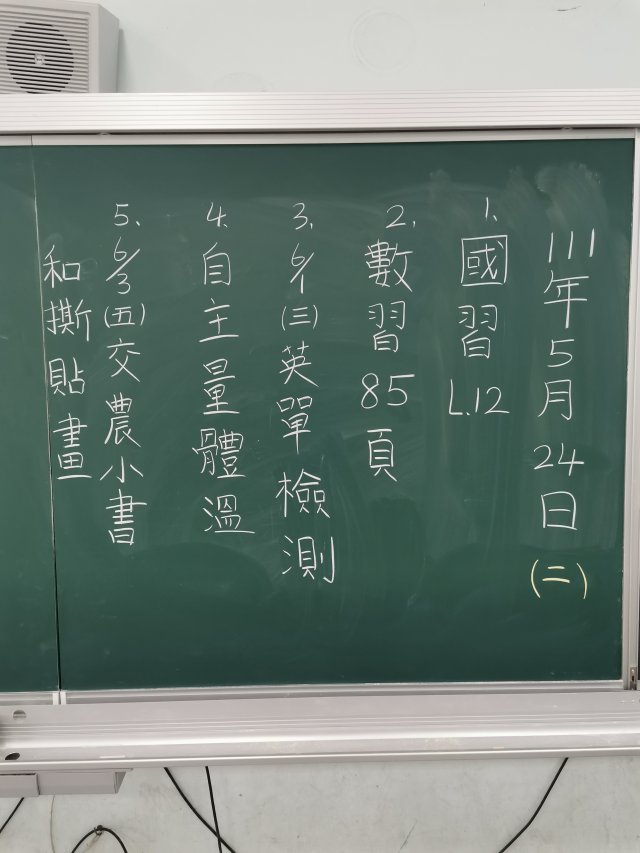 111年5月24日(二)
1.國習L.12
2.數習85頁
3.6/1(三)英單檢測
4.自主量體溫
5.6/3(五)交農小書
和撕貼畫